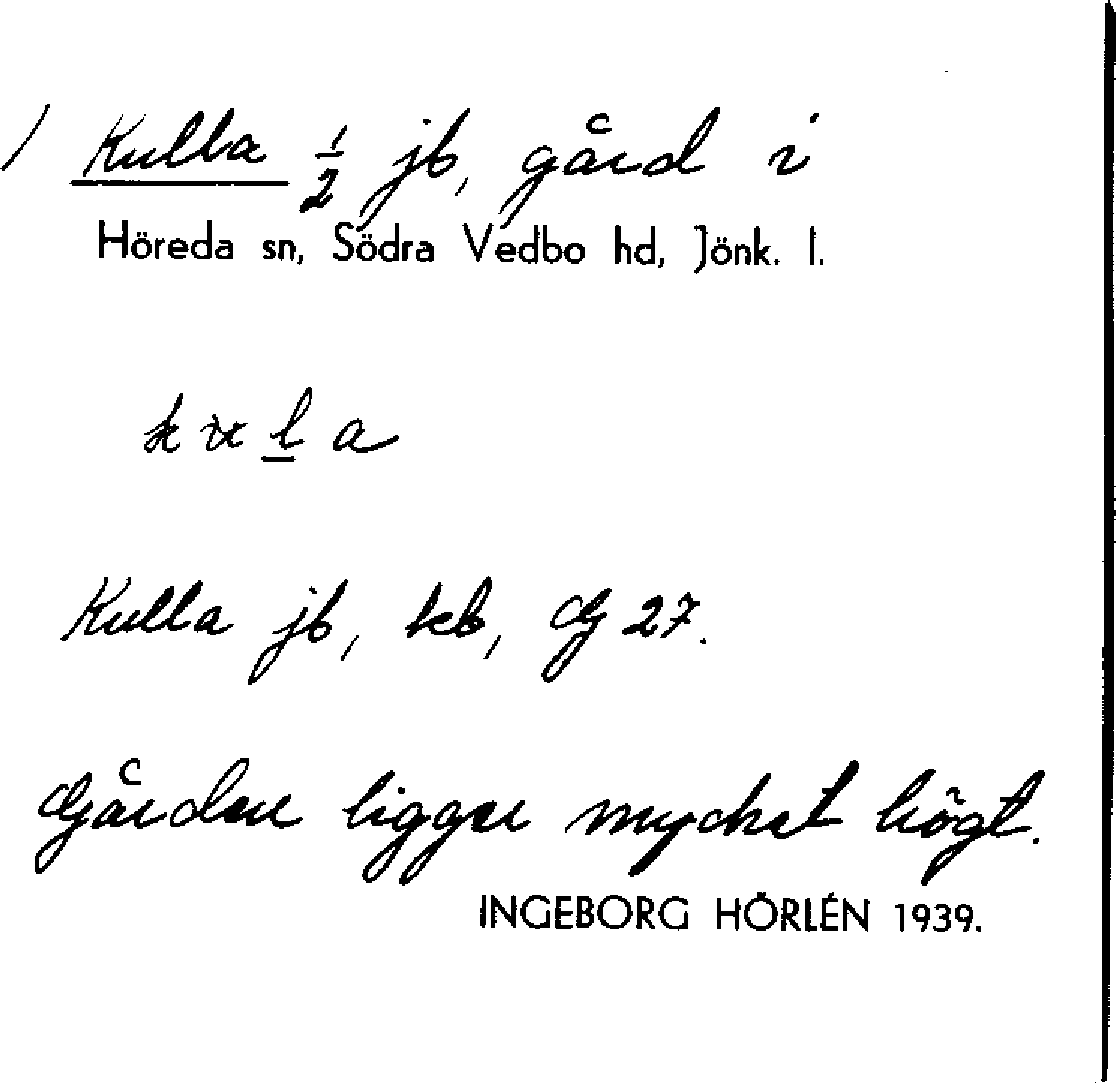 / Kulla ½ jb, gård i
Höreda sn, Södra Vedbo hd, Jönk. l.
Kulla jb, kb, G 27.
Gården ligger mycket högt.
INGEBORG HÖRLÉN 1939.